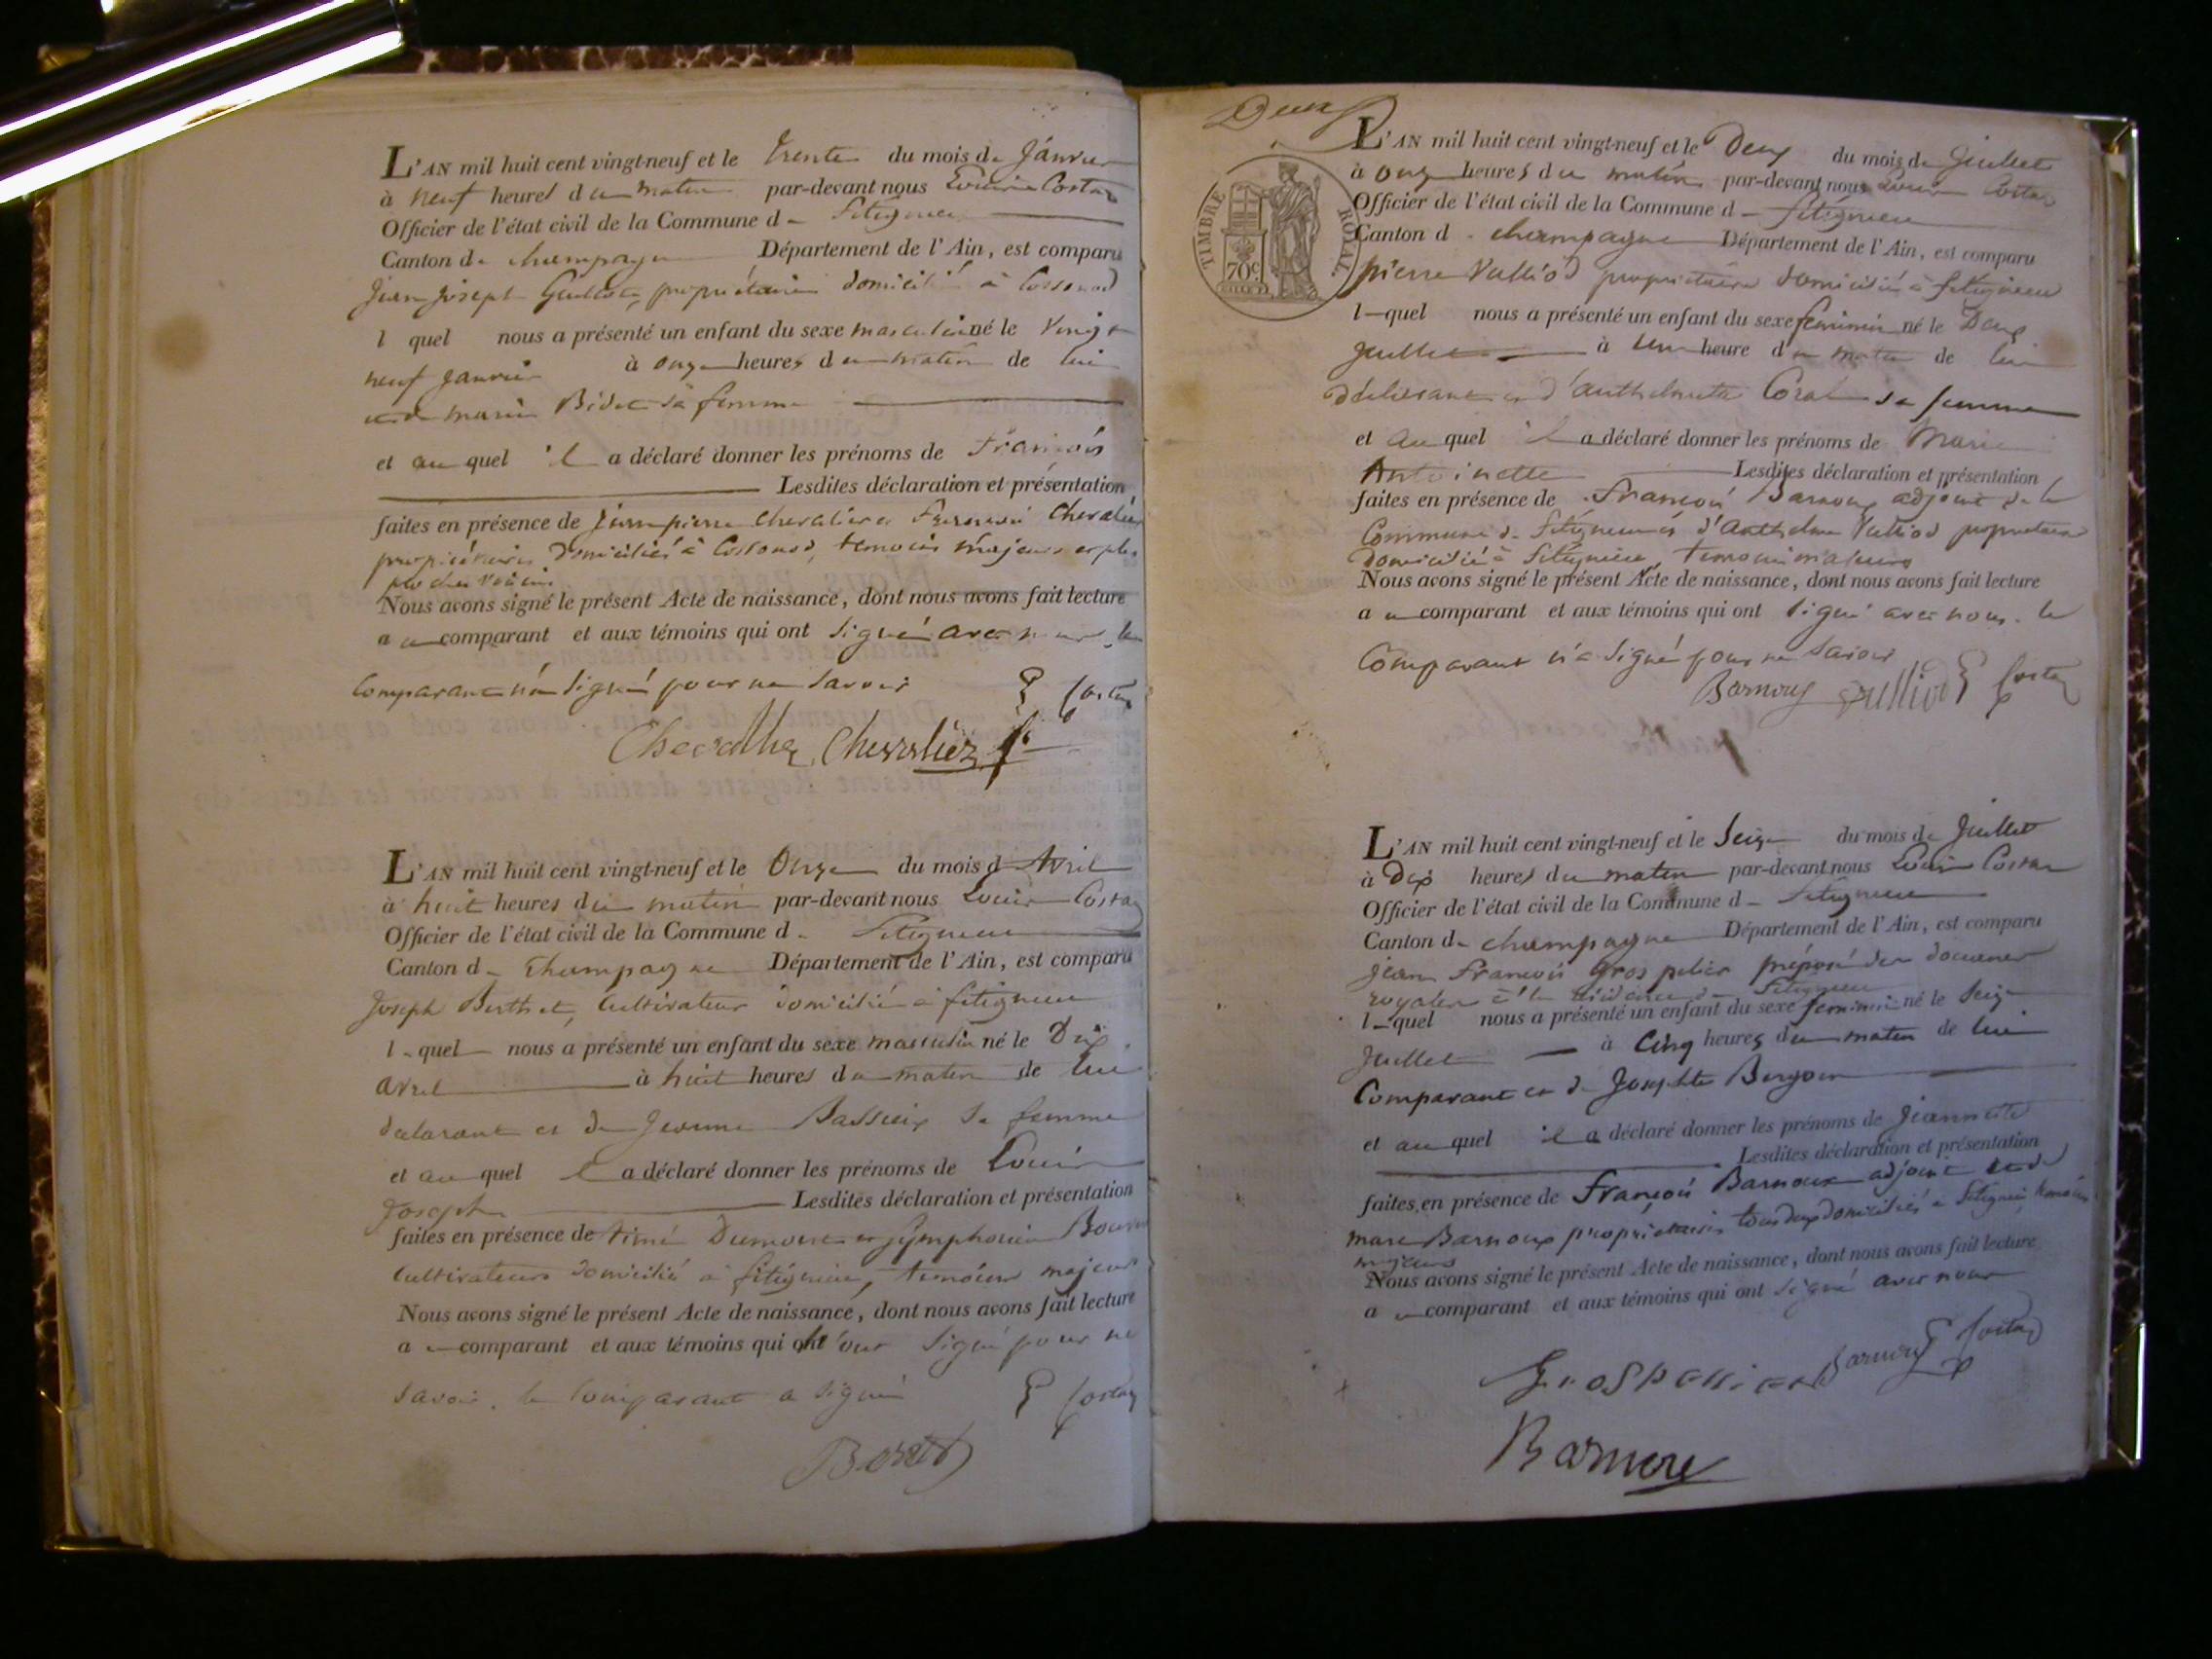 L'AN mil huit cent vingt-neuf et le trente du mois de Janvier
à neuf heures du matin par-devant nous Louis Costaz
Officier de l'état civil de la Commune de fitignieu
Canton de champagne Département de l'Ain, est comparu
Jean Joseph propriétaire domicilié à Cossonod
l quel nous a présenté un enfant du sexe masculin né le Vingt
neuf Janvier à onze heures du matin de lui
et de marie Bidet sa femme
et au quel il a déclaré donner les prénoms de François
Lesdites déclaration et présentation
faites en présence de Jean pierre Chevalier et Chevalier
propriétaires domiciliés à Cossonod, temoins majeurs et plus
proches voisins
Nous avons signé le présent Acte de naissance, dont nous avons fait lecture
au comparant et aux témoins qui ont signé avec nous, le
Comparant n'a signé pour ne savoir
Costaz
Chevallier Chevalier
L'AN mil huit cent vingt-neuf et le Onze du mois d Avril
à huit heures du matin par-devant nous Louis Costaz
Officier de l'état civil de la Commune de fitignieu
Canton de Champagne Département de l'Ain, est comparu
Joseph Berthet, Cultivateur domicilié à fitignieu
le quel nous a présenté un enfant du sexe masculin né le Dix
avril à huit heures du matin de lui
déclarant et de Jeanne Bassieux sa femme
et au quel il a déclaré donner les prénoms de Louis
Joseph Lesdites déclaration et présentation
faites en présence de Dumont et Symphorien
Cultivateurs domiciliés à fitignieu, temoins majeurs
Nous avons signé le présent Acte de naissance, dont nous avons fait lecture
au comparant et aux témoins qui n'ont signé pour ne
savoir. le Comparant a signé
Costaz
Deux
TIMBRE ROYAL
70c
L'AN mil huit cent vingt-neuf et le Deux du mois de Juillet
à onze heures du matin par-devant nous Louis Costaz
Officier de l'état civil de la Commune de fitignieu
Canton de champagne Département de l'Ain, est comparu
pierre Vulliod propriétaire domicilié à fitignieu
le quel nous a présenté un enfant du sexe feminin né le Deux
Juillet à une heure du matin de lui
déclarant et d'anthelmette sa femme
et au quel il a déclaré donner les prénoms de Marie
Antoinette Lesdites déclaration et présentation
faites en présence de François Barnoux adjoint de la
Commune de fitignieu et d'Anthelme Vulliod propriétaire
domicilié à fitignieu, temoins majeurs
Nous avons signé le présent Acte de naissance, dont nous avons fait lecture
au comparant et aux témoins qui ont signé avec nous. le
Comparant n'a signé pour ne savoir
Barnoux Vulliod Costaz
L'AN mil huit cent vingt-neuf et le Seize du mois de Juillet
à Dix heures du matin par-devant nous Louis Costaz
Officier de l'état civil de la Commune de fitignieu
Canton de champagne Département de l'Ain, est comparu
Jean François Gros pelier préposé des douanes
royales à la résidence de fitignieu
le quel nous a présenté un enfant du sexe feminin né le Seize
Juillet à Cinq heures du matin de lui
Comparant et de Josephte Bergoin
et au quel il a déclaré donner les prénoms de Jeannette
Lesdites déclaration et présentation
faites en présence de François Barnoux adjoint et de
marc Barnoux propriétaires tous deux domiciliés à fitignieu temoins
majeurs
Nous avons signé le présent Acte de naissance, dont nous avons fait lecture
au comparant et aux témoins qui ont signé avec nous
Grospellier Barnoux Costaz
Barnoux